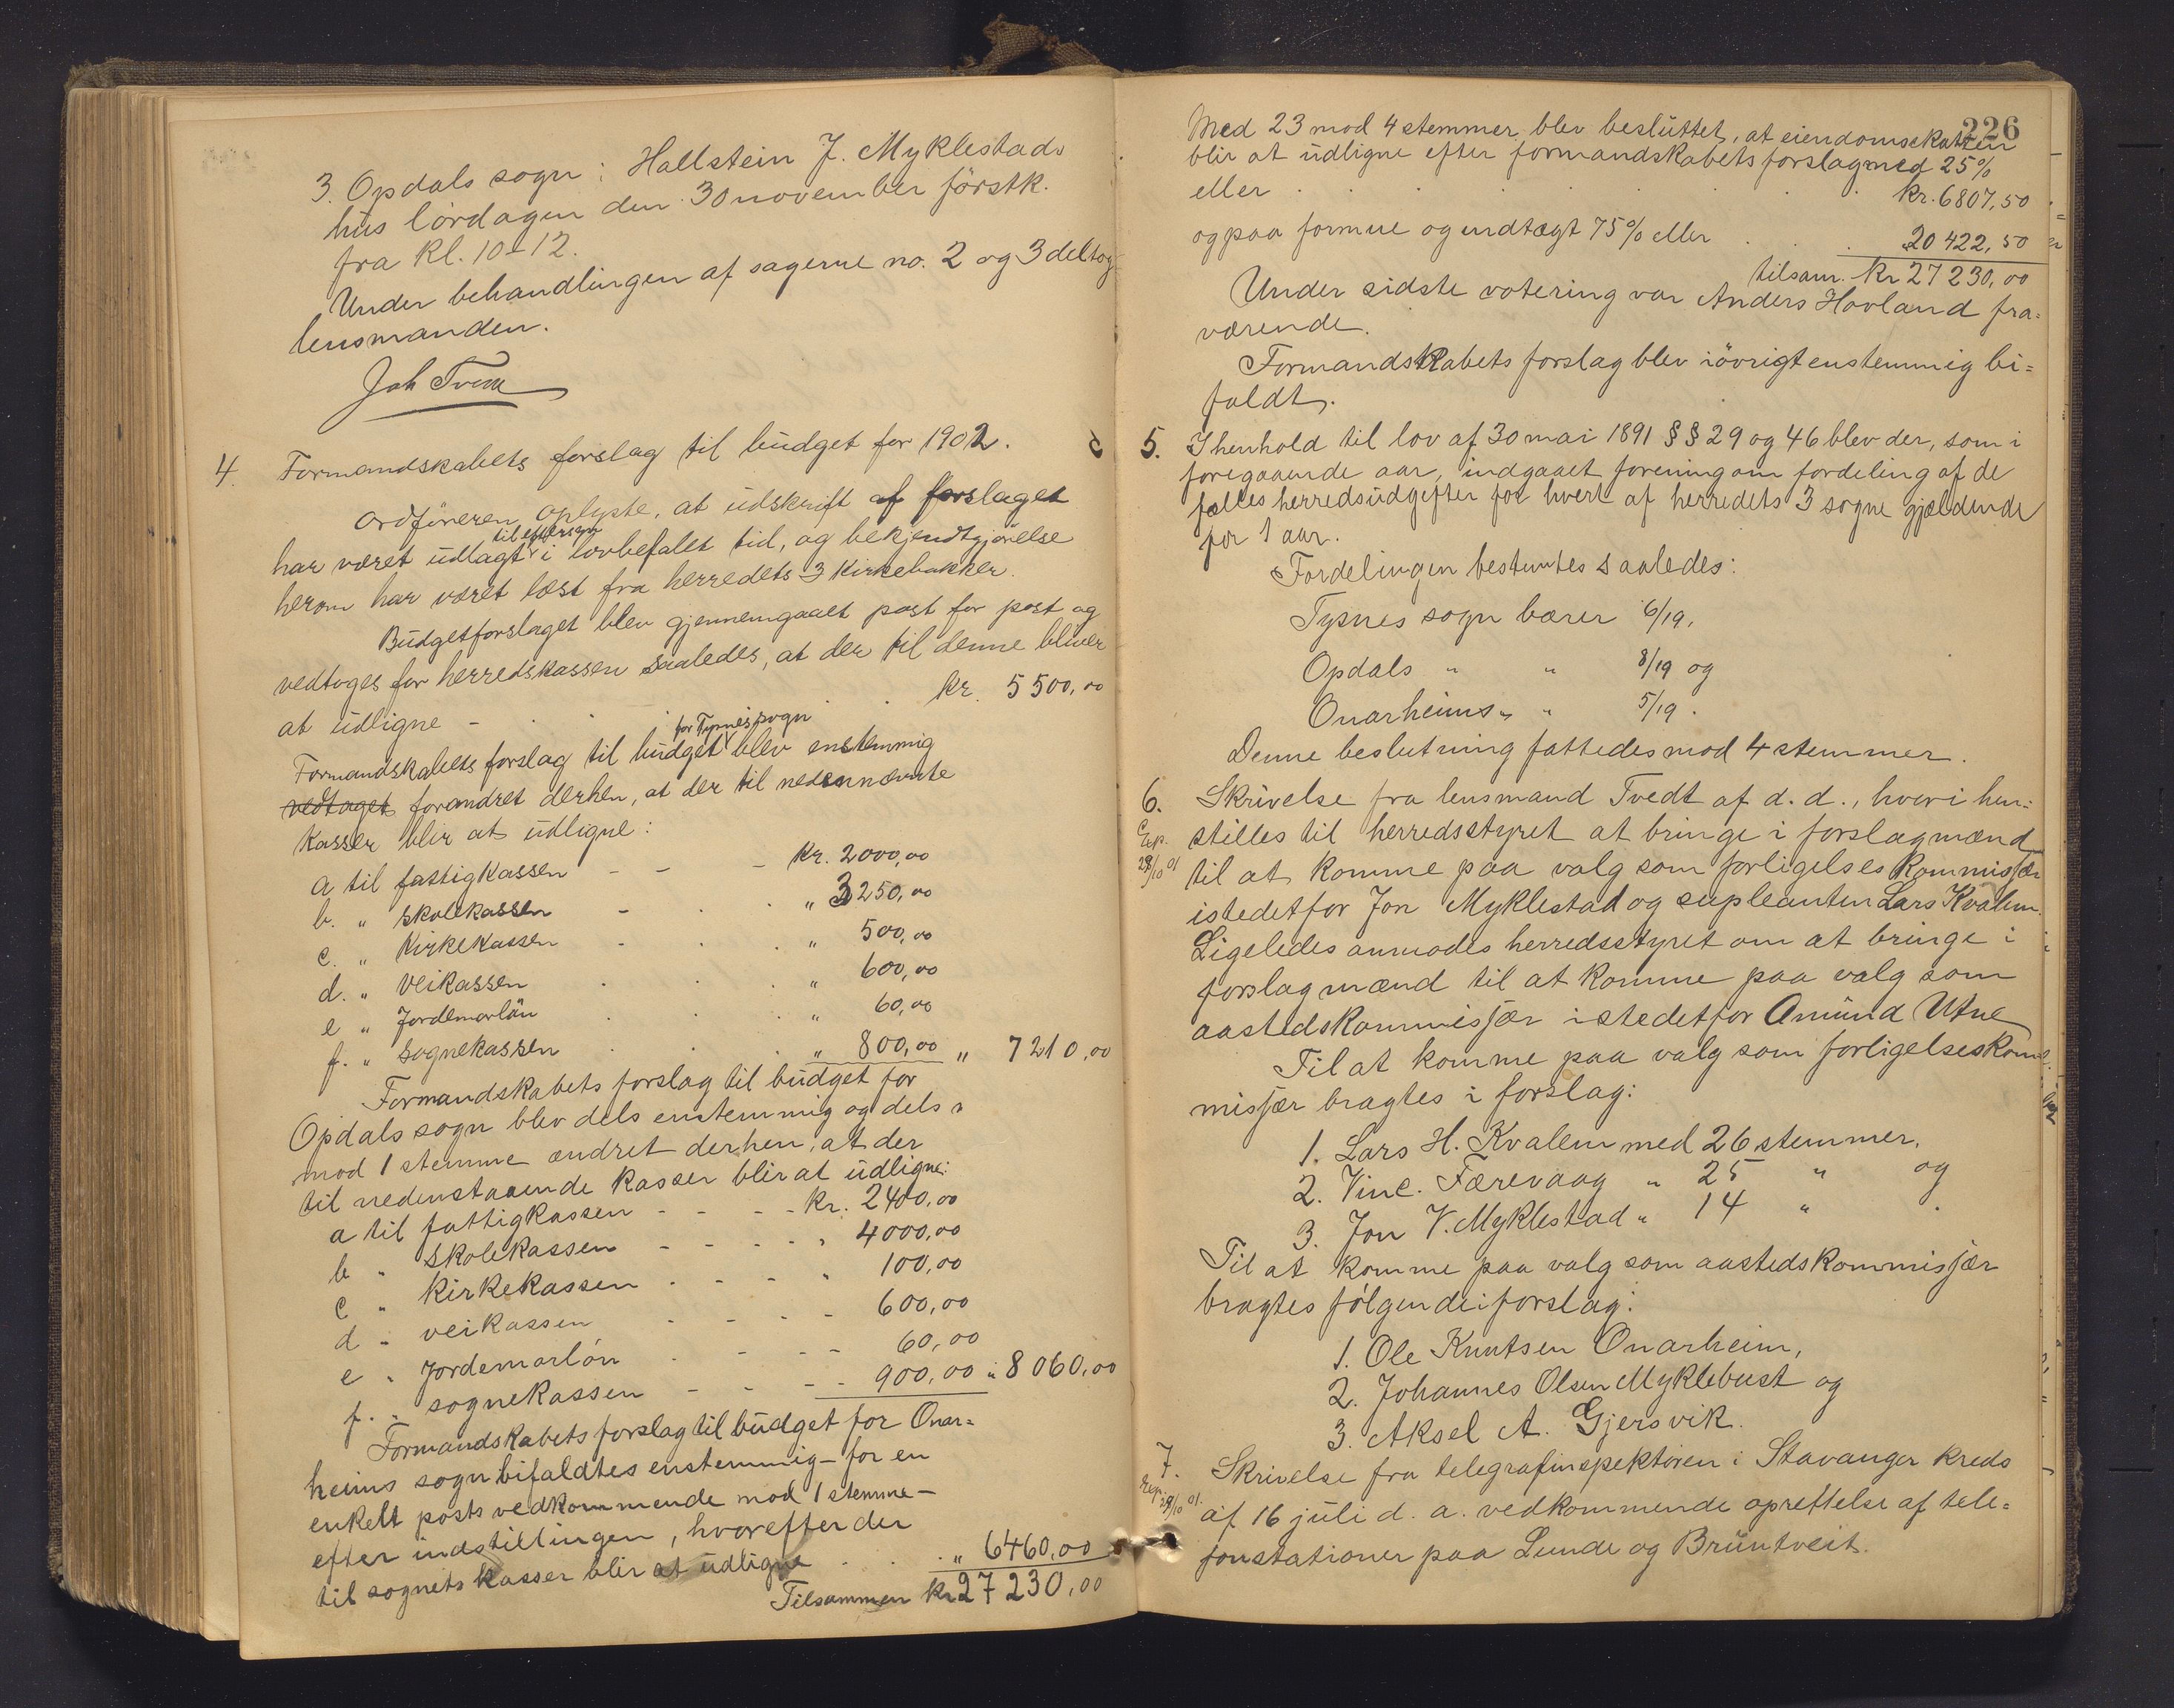 3. Opdals sogn: Hallstein J. Myklestads
hus lördagen den 30 november förstk.
fra kl. 10-12.
Under behandlingen af sagerne no. 2 og 3 deltog
lensmanden.
4. Formandskabets forslag til budget for 1902.
Ordföreren oplyste, at udskrift af forslaget
har været udlagt til eftersyn i lovbefalet tid, og bekjendtgjörelse
herom har været læst fra herredets 3 kirkebakker.
Budgetforslaget blev gjennemgaaet post for post og
vedtoges for herredskassen saaledes, at der til denne bliver
at udligne - . . . . kr. 5 500,00
Formandskabets forslag til budget for Tysnes sogn blev enstemmig
vedtaget forandret derhen, at der til nedennævnte
kasser blir at udligne:
a til fattigkassen - - - kr. 2000,00
b. " skolekassen - . . " 3250,00
c. " kirkekassen - . . " 500,00
d. " veikassen . . . " 600,00
e " jordemorlön . . . " 60,00
f. " sognekassen . . . " 800,00 " 7210,00
Formandskabets forslag til budget for
Opdals sogn blev dels enstemmig og dels
mod 1 stemme ændret derhen, at der
til nedenstaaende kasser blir at udligne:
a til fattigkassen - - - - kr. 2400,00
b " skolekassen - - - - " 4000,00
c " kirkekassen - - - " 100,00
d " veikassen - - - - 600,00
e " jordemorlön - - - - 60,00
f. " sognekassen - - - - 900,00 " 8 060,00
Formandskabets forslag til budget for Onar=
heims sogn bifaldtes enstemmig - for en
enkelt posts vedkommende mod 1 stemme -
efter indstillingen, hvorefter der
til sognets kasser blir at udligne . . . " 6460,00
Tilsammen kr 27 230,00
226
Med 23 mod 4 stemmer blev besluttet, at eiendomsskatten
blir at udligne efter formandskabets forslag med 25%
eller . . . . . kr. 6807,50
og paa formue og indtægt 75% eller . . 20 422,50
tilsam. kr 27 230,00
Under sidste votering var Anders Hovland fra=
værende.
Formandskabets forslag blev iövrigt enstemmig bi=
faldt.
5. I henhold til lov af 30 mai 1891 §§ 29 og 46 blev der, som i
foregaaende aar, indgaaet forening om fordeling af de
fælles herredsudgifter for hvert af herredets 3 sogne gjældende
for 1 aar.
Fordelingen bestemtes saaledes:
Tysnes sogn bærer 6/19,
Opdals " " 8/19 og
Onarheims " " 5/19.
Denne beslutning fattedes mod 4 stemmer.
6. Skrivelse fra lensmand Tvedt af d. d., hvori hen=
Exp. 28/10 01
stilles til herredsstyret at bringe i forslag mænd
til at komme paa valg som forligelseskommisjær
istedetfor Jon Myklestad og supleanten Lars Kvalem.
Ligeledes anmodes herredsstyret om at bringe i
forslag mænd til at komme paa valg som
aastedskommisjær istedetfor Amund Utne
Til at komme paa valg som forligelseskom=
misjær bragtes i forslag:
1. Lars H. Kvalem med 26 stemmer,
2. Vinc. Færevaag " 25 " og
3. Jon V. Myklestad " 14 " .
Til at komme paa valg som aastedskommisjær
bragtes fölgende i forslag:
1. Ole Knutsen Onarheim,
2. Johannes Olsen Myklebust og
3. Aksel A. Gjersvik.
7. Skrivelse fra telegrafinspektören i Stavanger kreds
af 16 juli d. a. vedkommende oprettelse af tele=
fonstationer paa Lunde og Bruntveit.